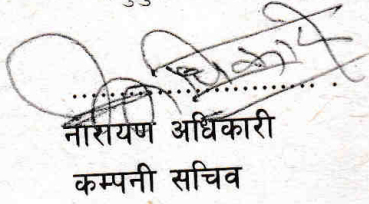 नारायण अधिकारी
कम्पनी सचिव